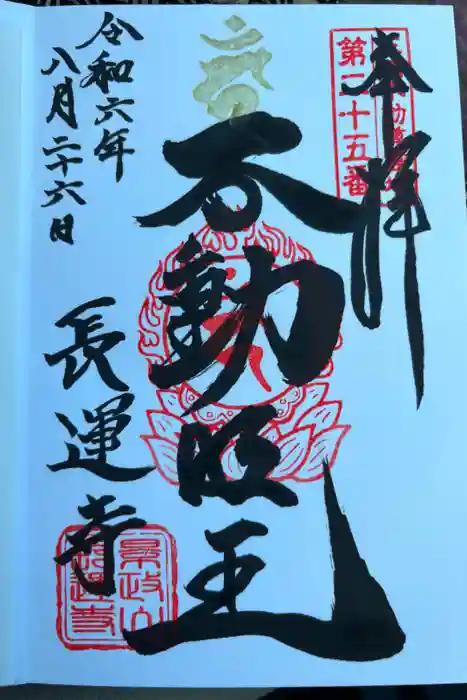 奉拝
第二十五番
不動明王
令和六年
八月二十六日
長運寺
景政山
長運寺